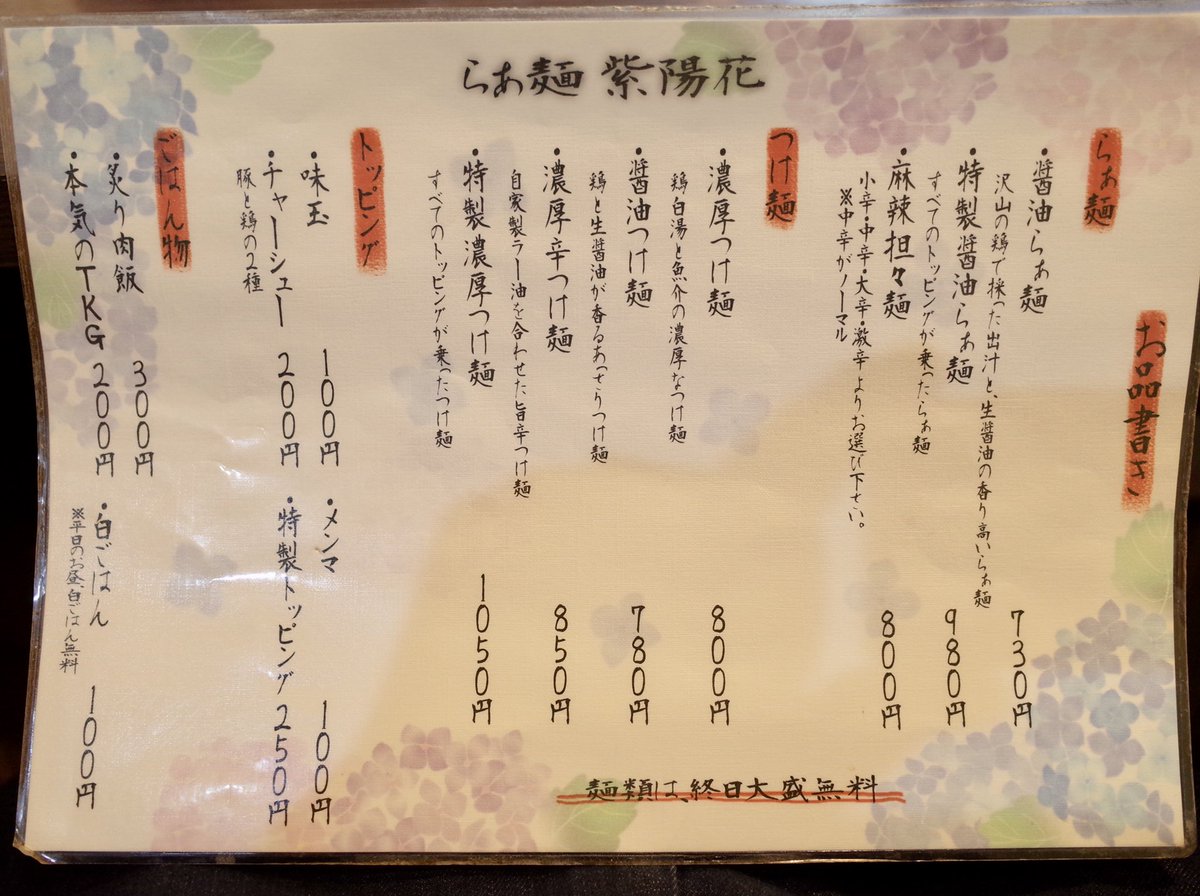 らぁ麺 紫陽花
お品書き
らぁ麺
・醤油らぁ麺 730円
沢山の鶏で採った出汁と、生醤油の香り高いらぁ麺
・特製醤油らぁ麺 980円
すべてのトッピングが乗ったらぁ麺
・麻辣担々麺 800円
小辛・中辛・大辛・激辛よりお選び下せい。
※中辛がノーマル
つけ麺
・濃厚つけ麺 800円
鶏白湯と魚介の濃厚なつけ麺
・醤油つけ麺 780円
鶏と生醤油が香るあっさりつけ麺
・濃厚辛つけ麺 850円
自家製ラー油を合わせた旨辛つけ麺
・特製濃厚つけ麺 1050円
すべてのトッピングが乗ったつけ麺
トッピング
・味玉 100円
・メンマ 100円
・チャーシュー 200円
豚と鶏の2種
・特製トッピング 250円
ごはん物
・炙り肉飯 300円
・本気のTKG 200円
・白ごはん 100円
※平日のお昼、白ごはん無料
麺類は、終日大盛無料